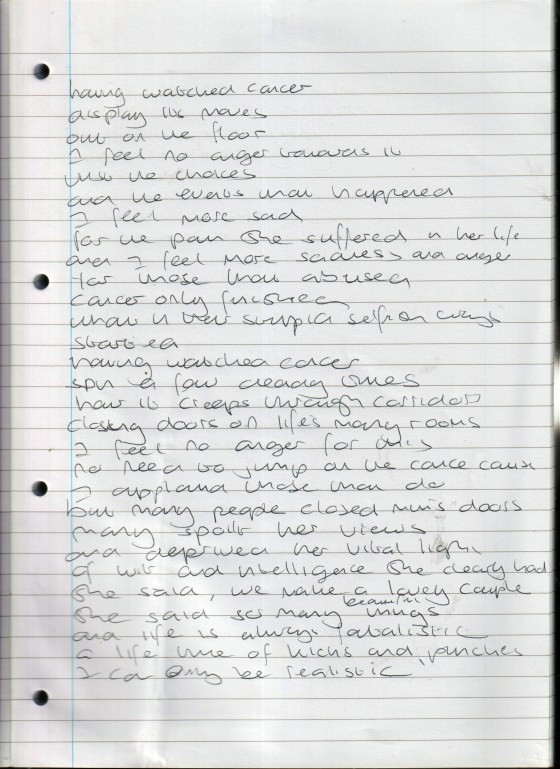 having watched cancer
display its moves
out on the floor
I feel no anger towards it
just the choices
and the events that happened
I feel more sad
for the pain she suffered in her life
and I feel more sadness and anger
for those that abused
cancer only finished
what in their stupid selfish ways
started
having watched cancer
spin a few deadly times
how it creeps through corridors
closing doors on life's many rooms
I feel no anger for this
no need to jump on the cancer cause
I applaud those that do
but many people closed mum's doors
many spoilt her views
and deprived her vital light
of wit and intelligence she clearly had
she said, we make a lovely couple
she said so many beautiful things
and life is always
a life time of kicks and punches
I can only be realistic